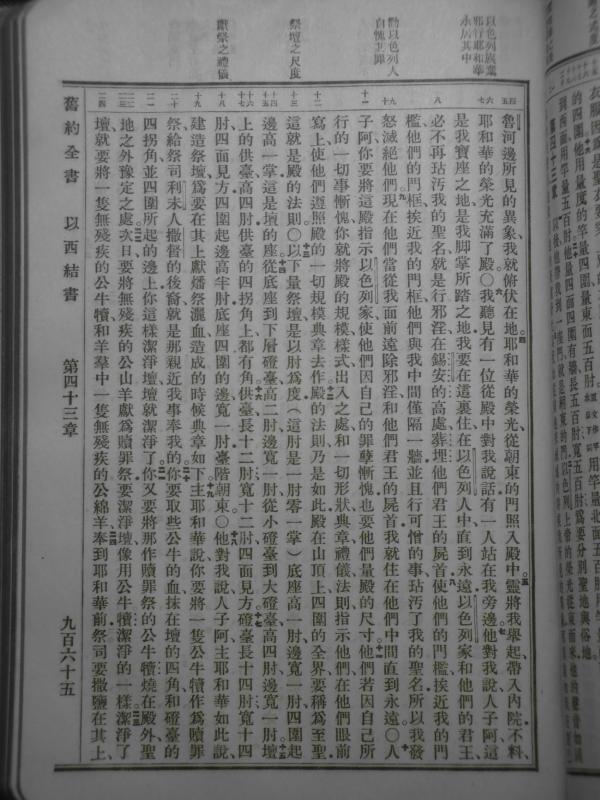 魯河邊所見的異象我就俯伏在地耶和華的榮光從朝東的門照入殿中靈將我舉起帶入內院不料
耶和華的榮光充滿了殿〇我聽見有一位從殿中對我說話有一人站在我旁邊他對我說人子阿這
是我寶座之地是我脚掌所踏之地我要在這裏住在以色列人中直到永遠以色列家和他們的君王
必不再玷汚我的聖名就是行邪淫在錫安的高處葬埋他們君王的屍首使他們的門檻挨近我的門
檻他們的門框挨近我的門框他們與我中間僅隔一牆並且行可憎的事玷汚了我的聖名所以我發
怒滅絕他們現在他們當從我面前遠除邪淫和他們君王的屍首我就住在他們中間直到永遠〇人
子阿你要將這殿指示以色列家使他們因自己的罪孽慚愧也要他們量殿的尺寸他們若因自己所
行的一切事慚愧你就將殿的規模樣式出入之處和一切形狀典章禮儀法則指示他們在他們眼前
寫上使他們遵照殿的一切規模典章去作殿的法則乃是如此殿在山頂上四圍的全界要稱爲至聖
這就是殿的法則〇以下量祭壇是以肘爲度（這肘是一肘零一掌）底座高一肘邊寬一肘四圍起
邊高一掌這是壇的座從底座到下層磴臺高二肘邊寬一肘從小磴臺到大磴臺高四肘邊寬一肘壇
上的供臺高四肘供臺的四拐角上都有角供臺長十二肘寬十二肘四面見方磴臺長十四肘寬十四
肘四面見方四圍起邊高半肘底座四圍的邊寬一肘臺階朝東〇他對我說人子阿主耶和華如此說
建造祭壇爲要在其上獻燔祭灑血造成的時候典章如下主耶和華說你要將一隻公牛犢作爲贖罪
祭給祭司利未人撒督的後裔就是那親近我事奉我的你要取些公牛的血抹在壇的四角和磴臺的
四拐角並四圍所起的邊上你這樣潔淨壇壇就潔淨了你又要將那作贖罪祭的公牛犢燒在殿外聖
地之外豫定之處次日要將無殘疾的公山羊獻爲贖罪祭要潔淨壇像用公牛犢潔淨的一樣潔淨了
壇就要將一隻無殘疾的公牛犢和羊羣中一隻無殘疾的公綿羊奉到耶和華前祭司要撒鹽在其上
舊約全書 以西結書 第四十三章 九百六十五
以色列族棄
邪行耶和華
永居其中
勸以色列人
自愧其罪
祭壇之尺度
獻祭之禮儀